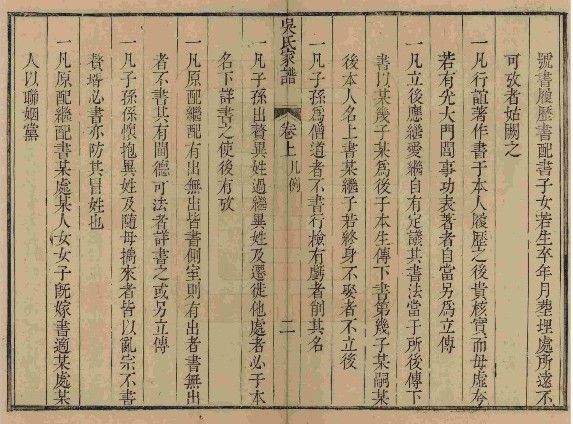 號書履歷書配書子女若生卒年月塟埋處所遠不
可攷者姑闕之
一凡行誼著作書于本人履歷之後貴核實而毋虛夸
若有光大門閭事功表著者自當另爲立傳
一凡立後應繼愛繼自有定議其書法當于所後傳下
書以某幾子某爲後子本生傳下書第幾子某嗣某
後本人名上書某繼子若終身不娶者不立後
一凡子孫爲僧道者不書行檢有虧者削其名
吳氏家譜
卷上
凡例
二
一凡子孫出贅異姓過繼異姓及遷徙他處者必于本
名下詳書之使後有攷
一凡原配繼配有出無出皆書側室則有出者書無出
者不書其有閫德可法者詳書之或另立傳
一凡子孫係懷抱異姓及隨母攜來者皆以亂宗不書
贅壻必書亦防其冒姓也
一凡原配繼配書某處某人女女子旣嫁書適某處某
人以聯姻黨